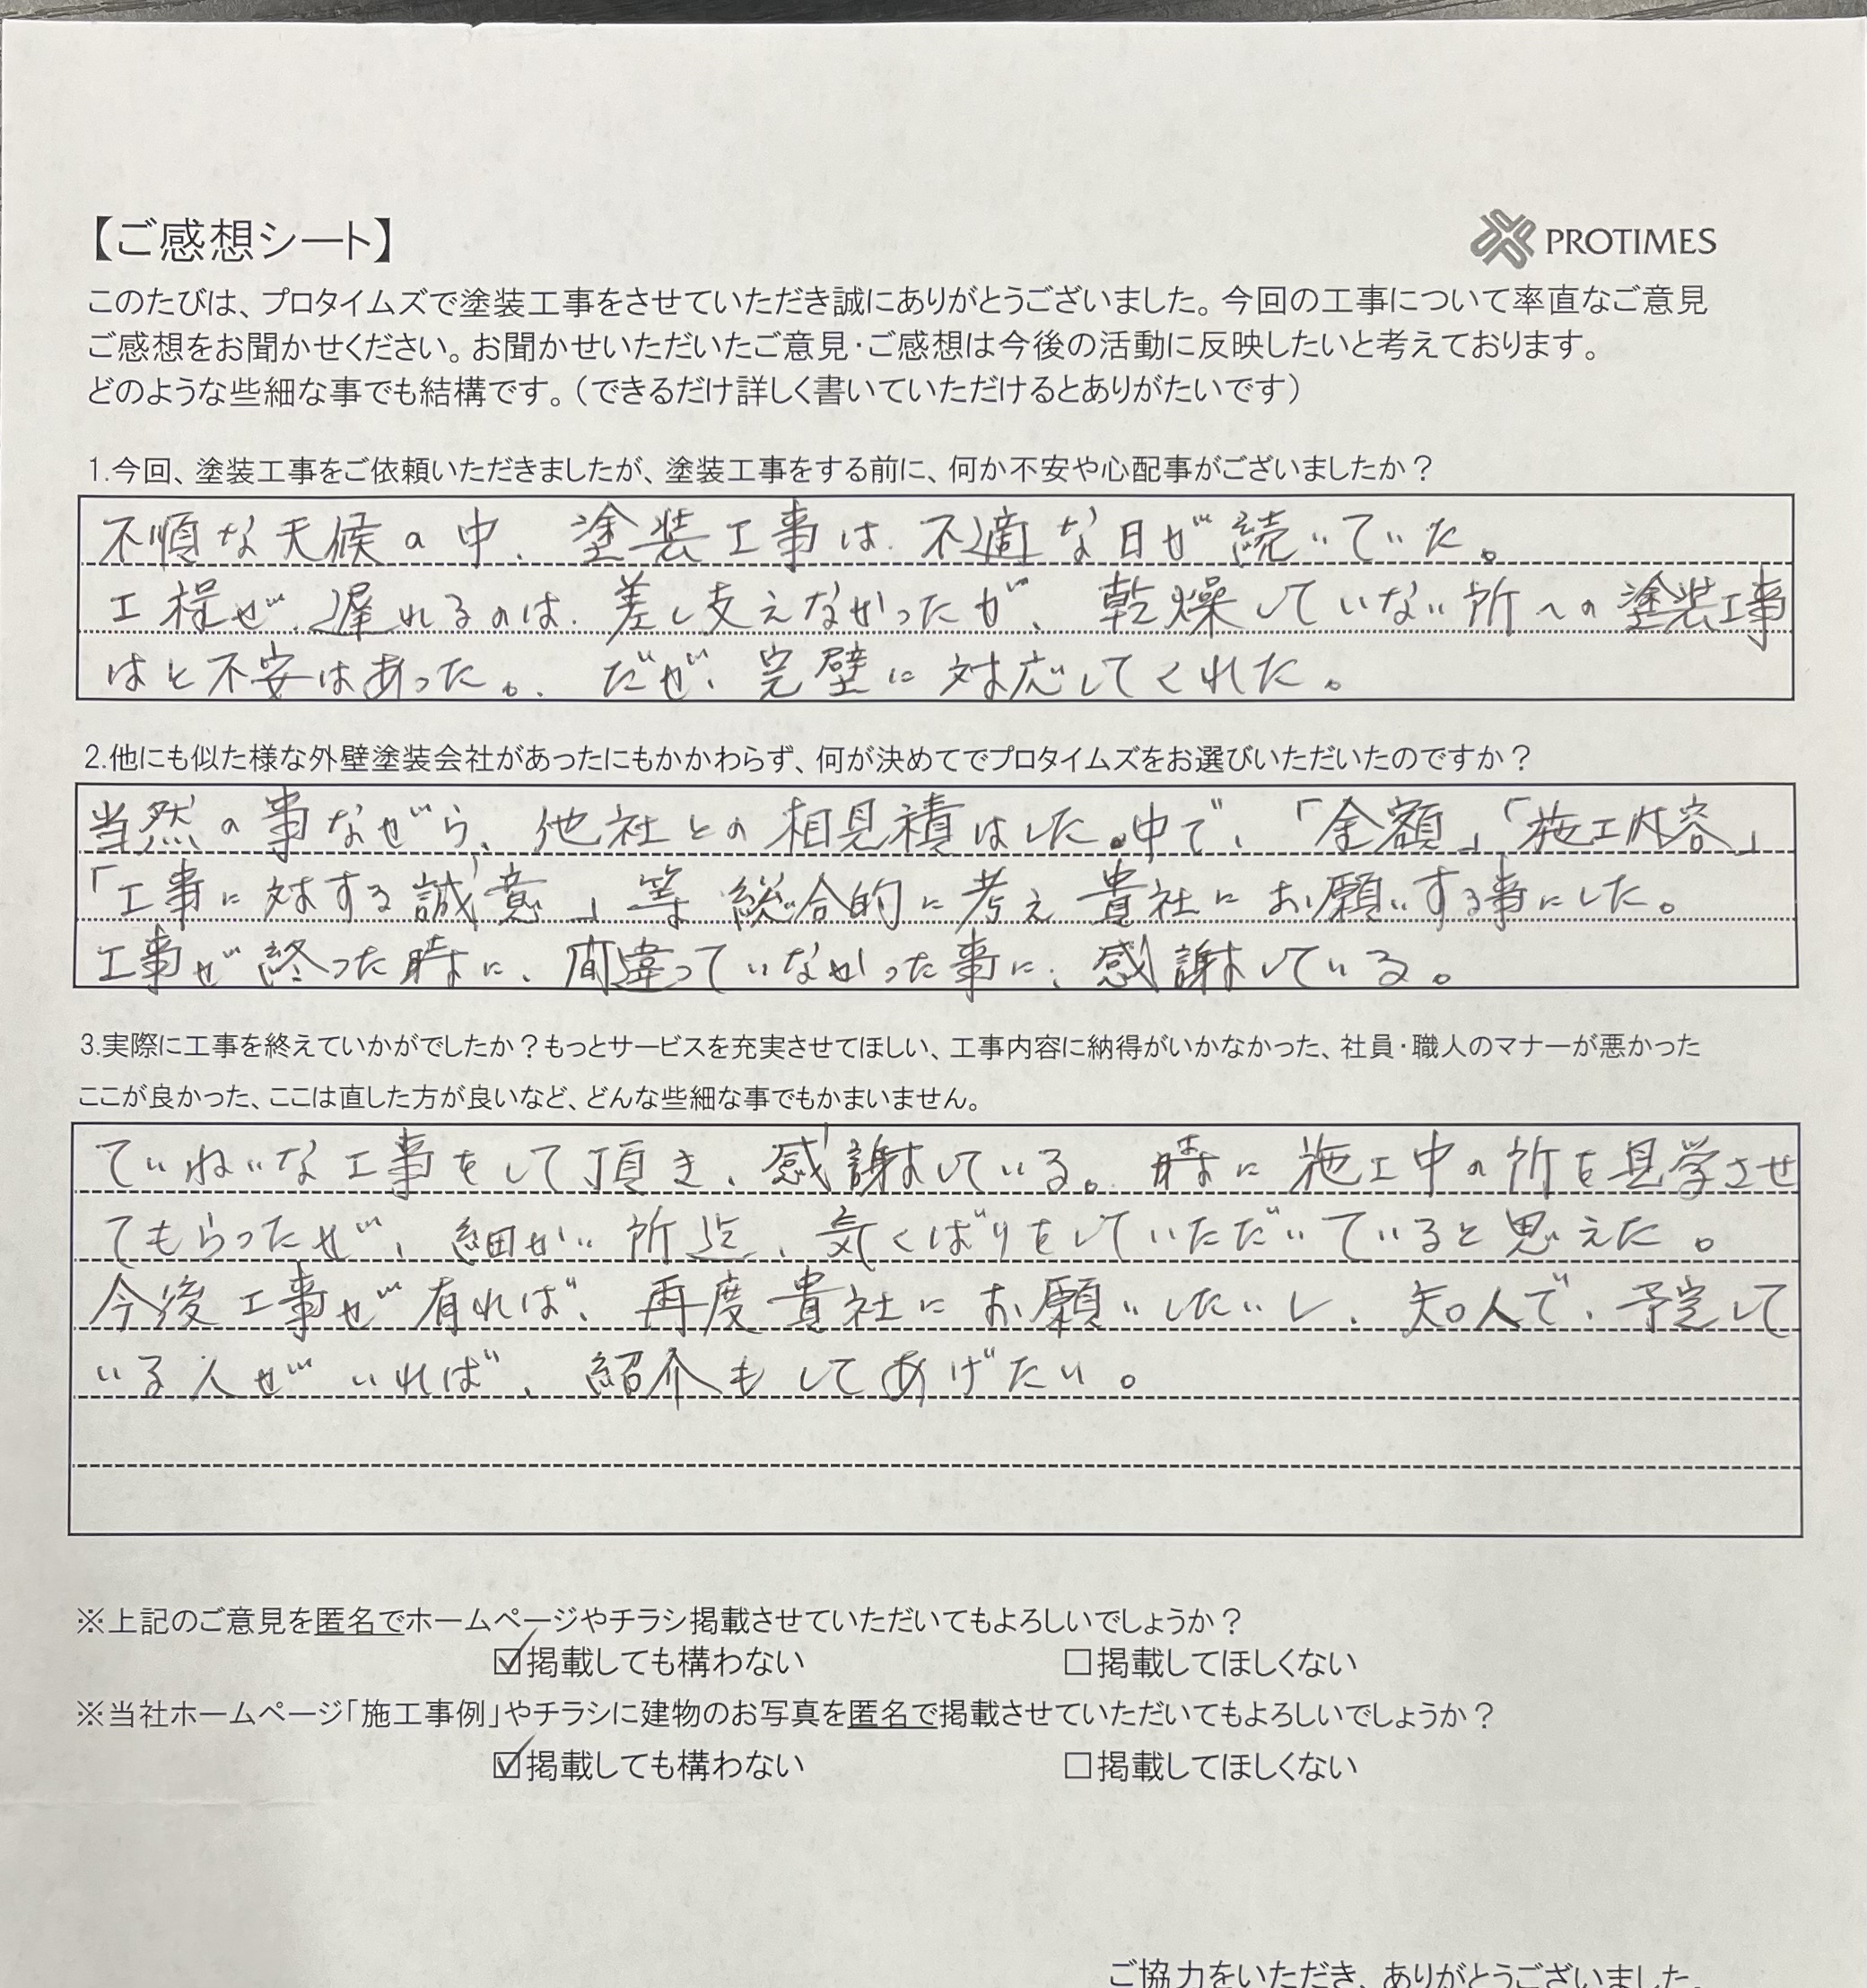 【ご感想シート】
PROTIMES
このたびは、プロタイムズで塗装工事をさせていただき誠にありがとうございました。今回の工事について率直なご意見
ご感想をお聞かせください。お聞かせいただいたご意見・ご感想は今後の活動に反映したいと考えております。
どのような些細な事でも結構です。（できるだけ詳しく書いていただけるとありがたいです）
1.今回、塗装工事をご依頼いただきましたが、塗装工事をする前に、何か不安や心配事がございましたか？
不順な天候の中、塗装工事は、不適な日が続いていた。
工程が、遅れるのは、差し支えなかったが、乾燥していない所への塗装工事
はと不安はあった。だが、完璧に対応してくれた。
2.他にも似た様な外壁塗装会社があったにもかかわらず、何が決めてでプロタイムズをお選びいただいたのですか？
当然の事ながら、他社との相見積はした。中で、「金額」「施工内容」
「工事に対する誠意」等総合的に考え貴社にお願いする事にした。
工事が終った時に、間違っていなかった事に、感謝している。
3.実際に工事を終えていかがでしたか？もっとサービスを充実させてほしい、工事内容に納得がいかなかった、社員・職人のマナーが悪かった
ここが良かった、ここは直した方が良いなど、どんな些細な事でもかまいません。
ていねいな工事をして頂き、感謝している。時に施工中の所を見学させ
てもらったが、細かい所迄、気くばりをしていただいていると思えた。
今後工事が有れば、再度貴社にお願いしたいし、知人で、予定して
いる人がいれば、紹介もしてあげたい。
※上記のご意見を匿名でホームページやチラシ掲載させていただいてもよろしいでしょうか？
☑掲載しても構わない　□掲載してほしくない
※当社ホームページ「施工事例」やチラシに建物のお写真を匿名で掲載させていただいてもよろしいでしょうか？
☑掲載しても構わない　□掲載してほしくない
ご協力をいただき、ありがとうございました。